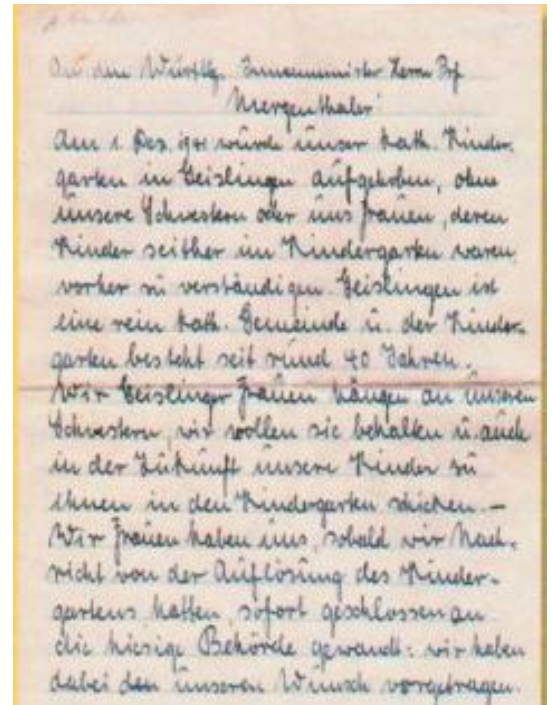 An den Württbg. Innenminister Herrn Prof.
Mergenthaler!
Am 1. Dez. 1941 wurde unser kath. Kinder-
garten in Geislingen aufgehoben, ohne
unsere Schwestern oder uns Frauen, deren
Kinder seither im Kindergarten waren,
vorher zu verständigen. Geislingen ist
eine rein kath. Gemeinde u. der Kinder-
garten besteht seit rund 40 Jahren.
Wir Geislinger Frauen hängen an unseren
Schwestern, wir wollen sie behalten u. auch
in der Zukunft unsere Kinder zu
ihnen in den Kindergarten schicken. –
Wir Frauen haben uns, sobald wir Nach-
richt von der Auflösung des Kinder-
gartens hatten, sofort geschlossen an
die hiesige Behörde gewandt: wir haben
dabei den unseren Wunsch vorgetragen.